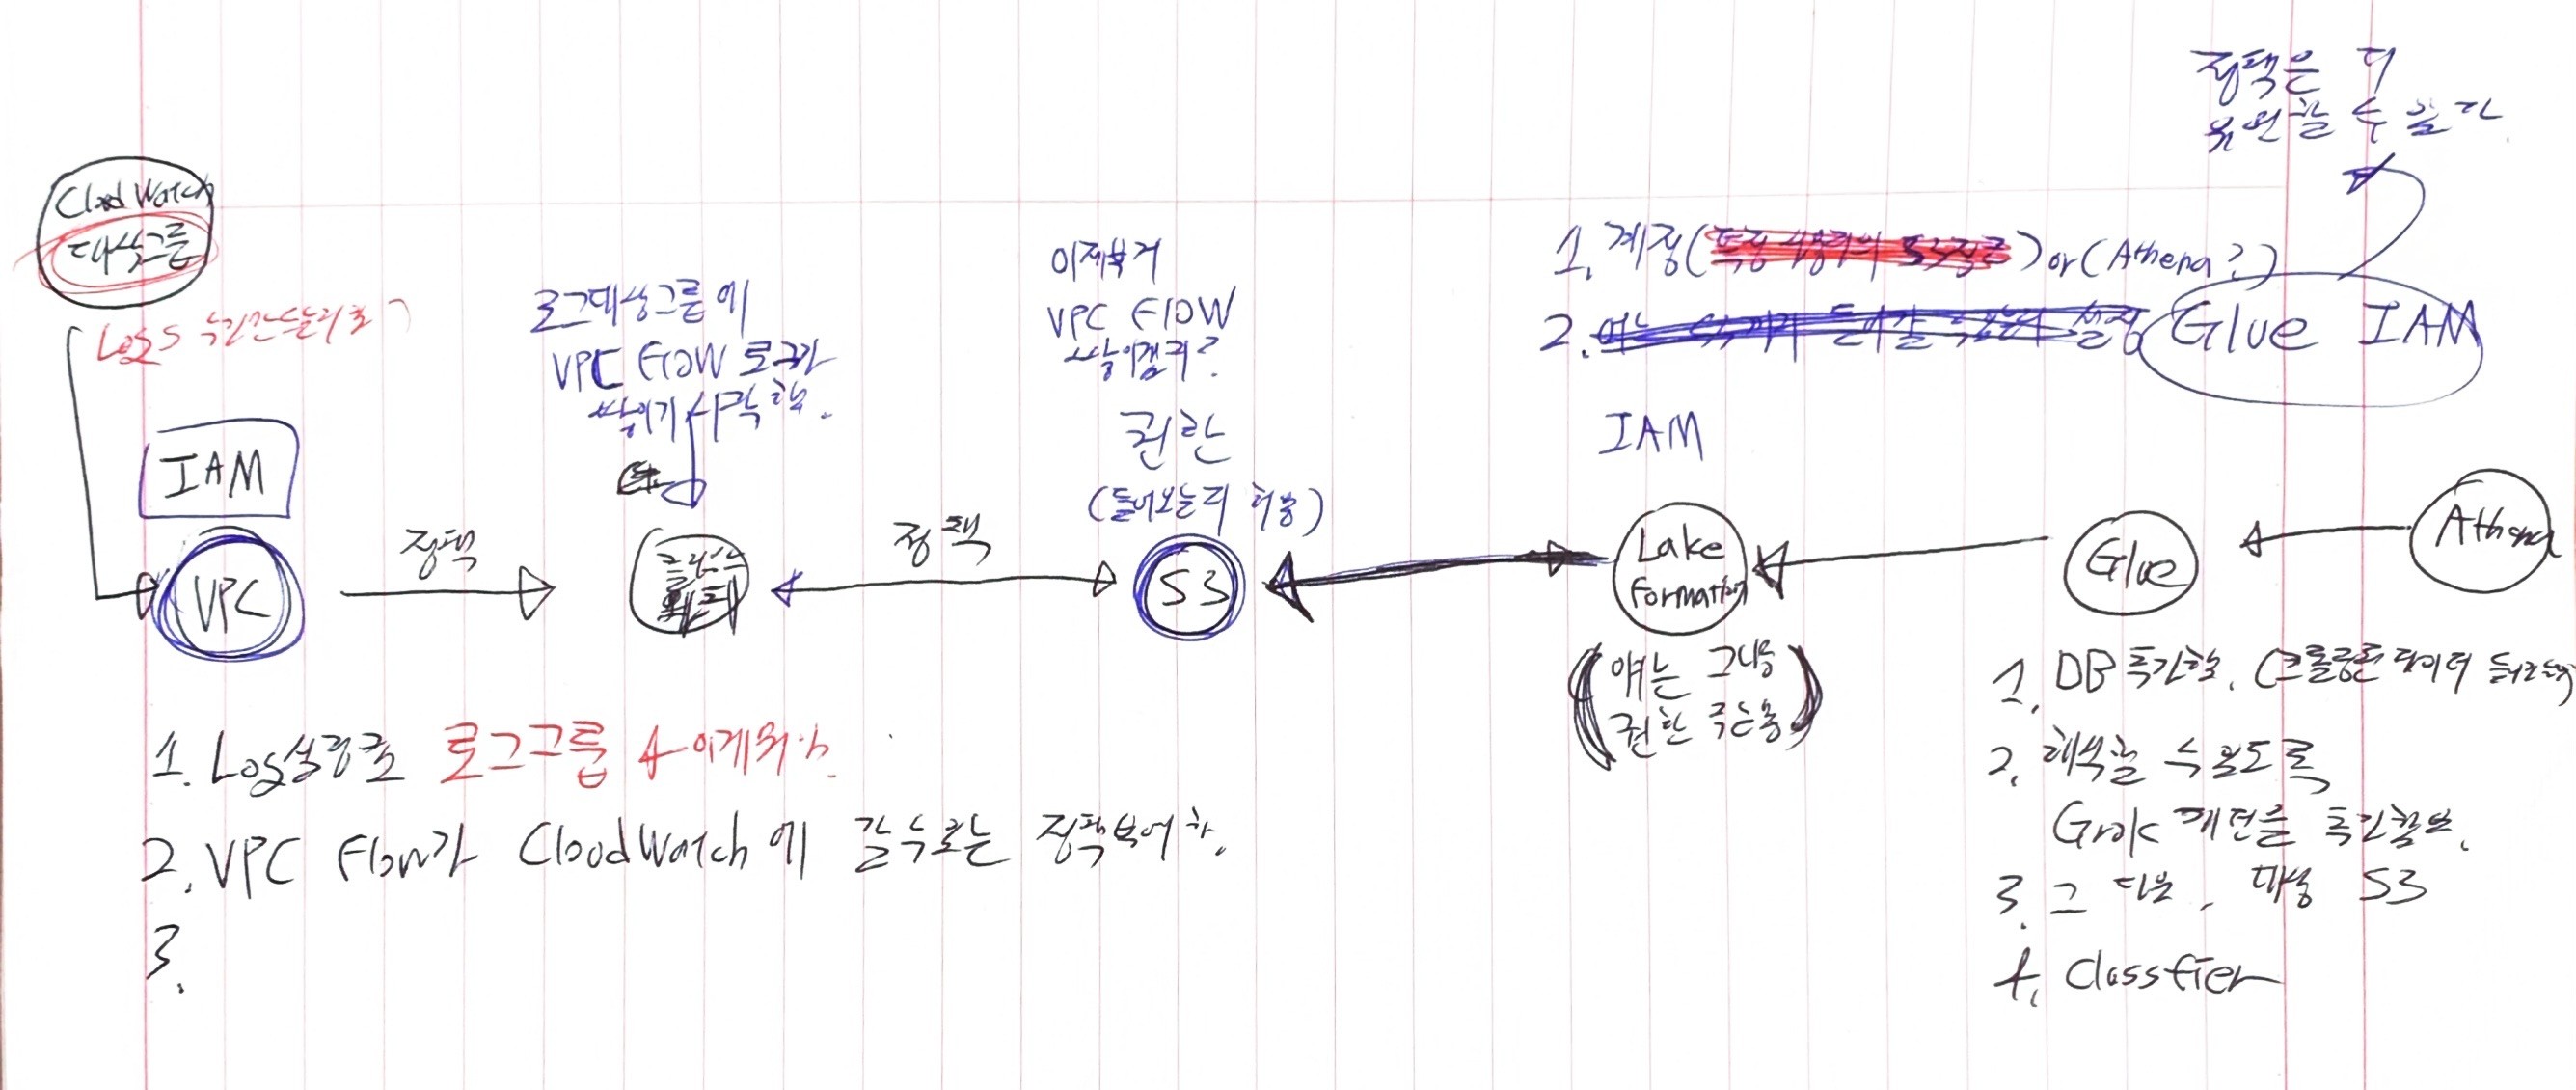 정책은 더
유연할 수 있다
Clod Watch
대상그룹
Logs
1. 계정( ) or (Athena?)
2. Glue IAM
이제부터
VPC FlOW
쌓이겠지?
로그대상그룹에
VPC FlOW 로그가
쌓이기 시작함.
권한
(들어오는거 허용)
IAM
IAM
VPC
정책
정책
S3
Lake
Formation
Glue
Athena
(얘는 그냥
권한 주는용)
1. Log설정은 로그그룹
2. VPC Flow가 CloudWatch에 정책
3.
1. DB 추가함. (크롤링된 데이터
2. 해석할 수 있도록
Grok 패턴을
3. 그 다음, 대상 S3
4. Classfier